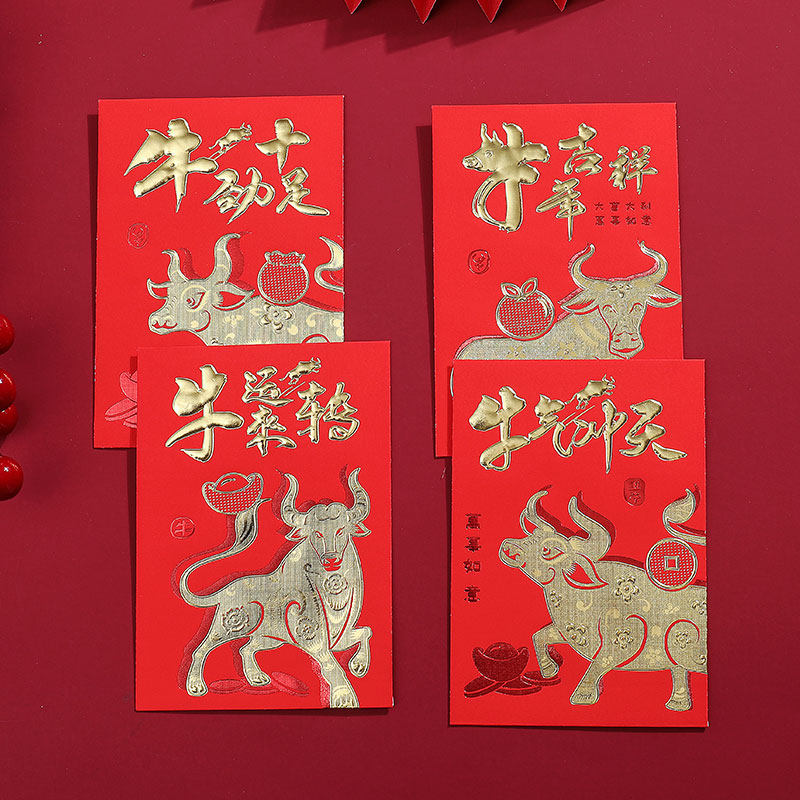 牛劲十足
牛年吉祥
大吉大利
萬事如意
牛运来转
牛
牛气冲天
萬事如意